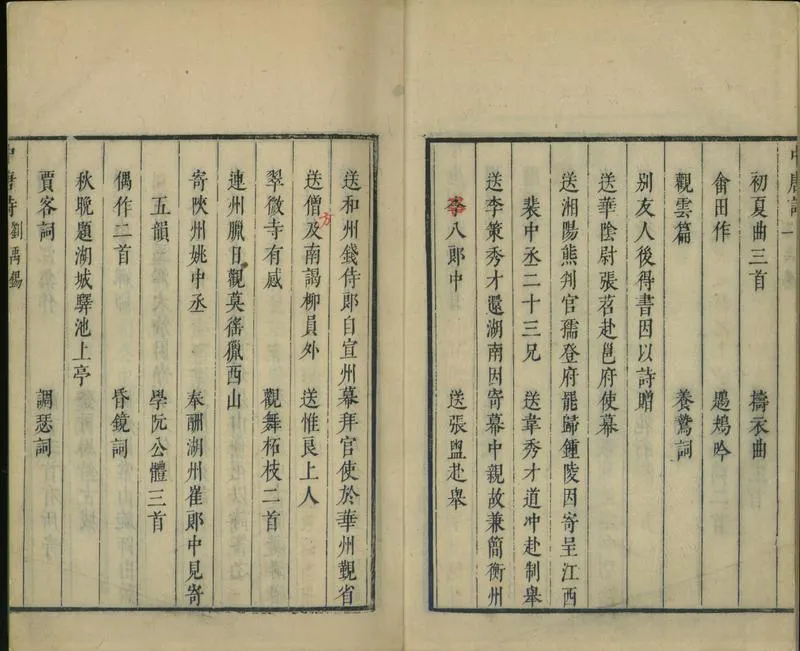 中唐詩 一
初夏曲三首 擣衣曲
畬田作 鶗鴂吟
觀雲篇 養鷙詞
別友人後得書因以詩贈
送華陰尉張苕赴邕府使幕
送湘陽熊判官孺登府罷歸鍾陵因寄呈江西
裴中丞二十三兄 送韋秀才道冲赴制舉
送李策秀才還湖南因寄幕中親故兼簡衡州
八郎中 送張盥赴舉
送和州錢侍郎自宣州幕拜官使於華州覲省
送僧方及南謁柳員外 送惟良上人
翠微寺有感 觀舞柘枝二首
連州臘日觀莫徭獵西山
寄陜州姚中丞 奉酬湖州崔郎中見寄
五韻 學阮公體三首
偶作二首 昏鏡詞
秋晚題湖城驛池上亭
賈客詞 調瑟詞
中唐詩 劉禹錫